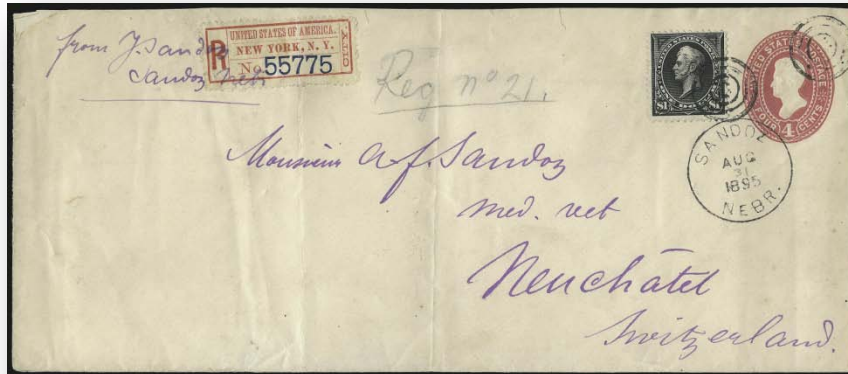 from J. Sandoz
Sandoz Nebr
UNITED STATES OF AMERICA.
R
NEW YORK, N.Y.
No. 55775
Reg nº 21.
$1
UNITED STATES POSTAGE
FOUR 4 CENTS
SANDOZ
AUG
31
1895
NEBR.
Monsieur A. f. Sandoz
med. vet
Neuchâtel
Switzerland.